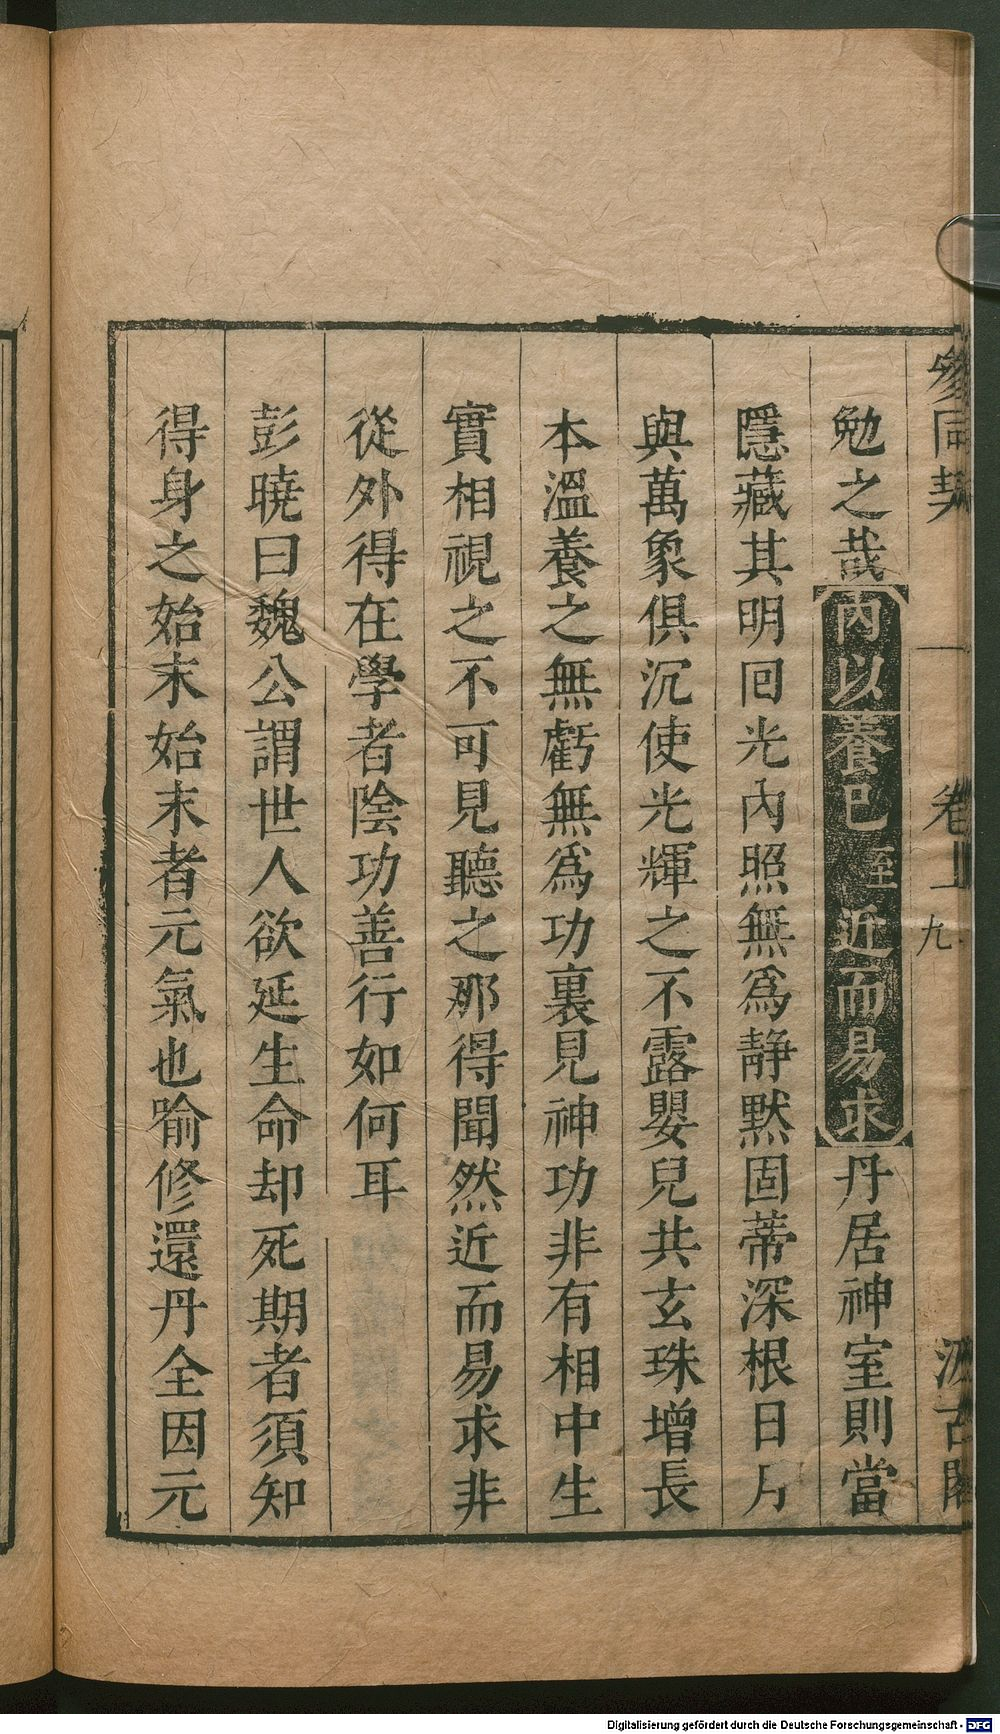 參同契 卷上 九 汲古閣
勉之哉內以養已至近而易求丹居神室則當
隱藏其明回光內照無爲靜默固蒂深根日月
與萬象俱沉使光輝之不露嬰兒共玄珠增長
本溫養之無虧無爲功裏見神功非有相中生
實相視之不可見聽之那得聞然近而易求非
從外得在學者陰功善行如何耳
彭曉曰魏公謂世人欲延生命却死期者須知
得身之始末始末者元氣也喻修還丹全因元
Digitalisierung gefördert durch die Deutsche Forschungsgemeinschaft - DFG